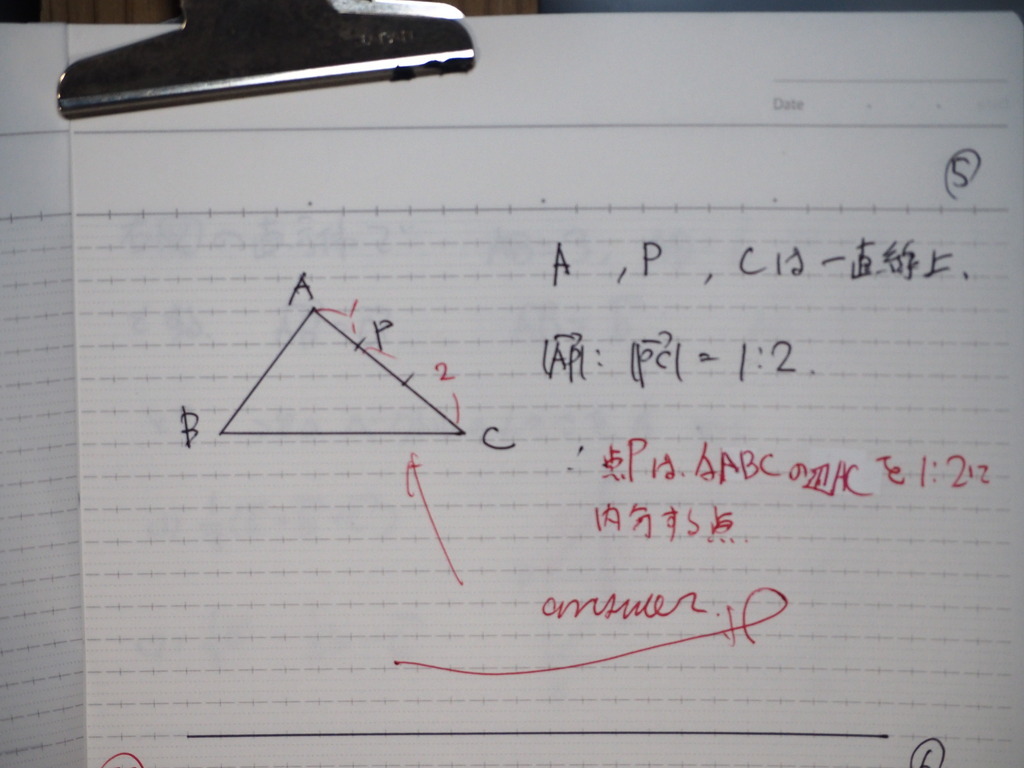 Date
⑤
A , P , Cは一直線上.
|AP→| : |PC→| = 1:2.
A
1
P
2
B
C
∴ 点Pは、△ABCの辺ACを1:2に
内分する点
answer.
⑥